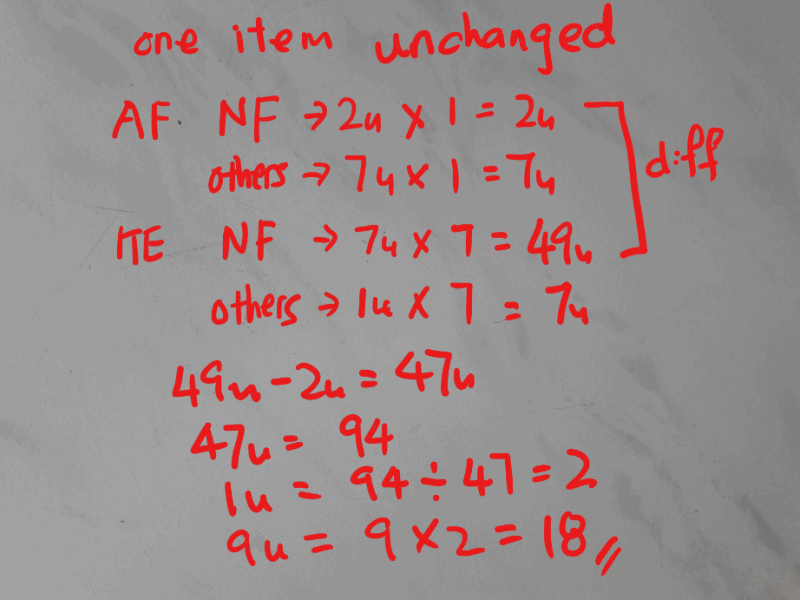 one item unchanged
AF NF → 2u × 1 = 2u
others → 7u × 1 = 7u
diff
ITE NF → 7u × 7 = 49u
others → 1u × 7 = 7u
49u - 2u = 47u
47u = 94
1u = 94 ÷ 47 = 2
9u = 9 × 2 = 18